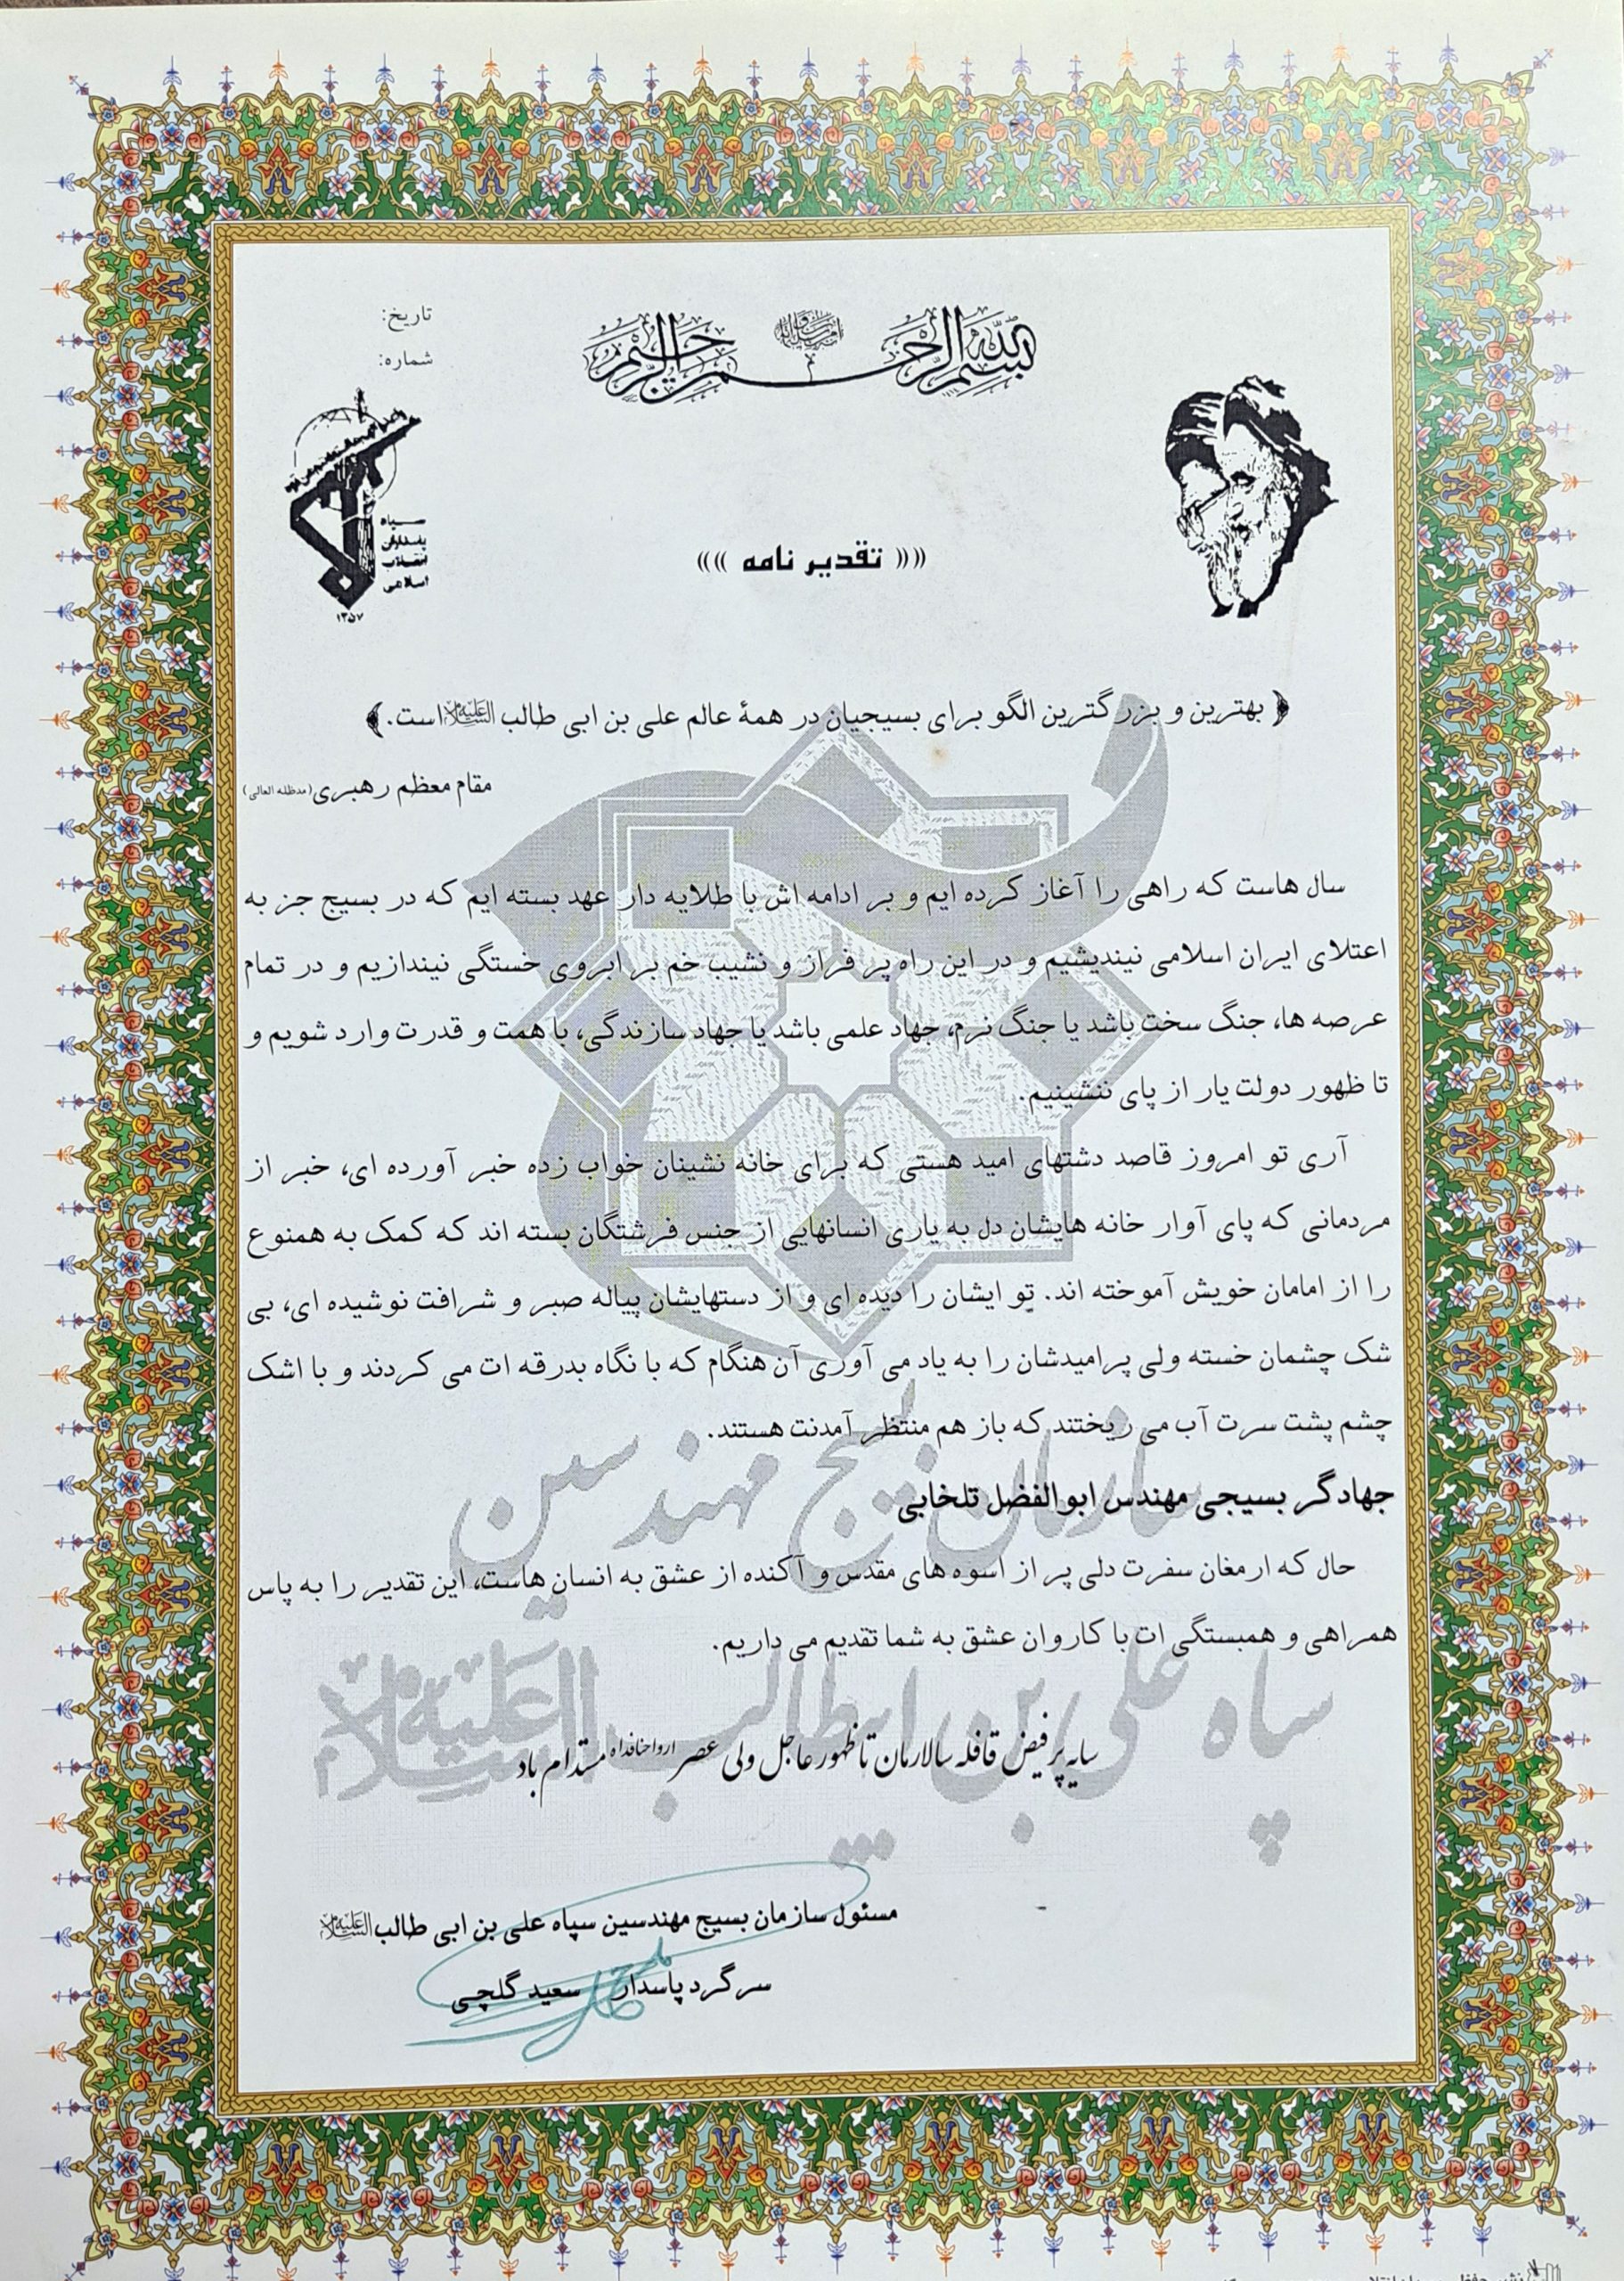 بسم الله الرحمن الرحیم
تاریخ:
شماره:
سپاه
پاسداران
انقلاب
اسلامی
۱۳۵۷
(( تقدیر نامه ))
﴿ بهترین و بزرگترین الگو برای بسیجیان در همهٔ عالم علی بن ابی طالب علیه‌السلام است. ﴾
مقام معظم رهبری (مدظله العالی)
سال هاست که راهی را آغاز کرده ایم و بر ادامه اش با طلایه دار عهد بسته ایم که در بسیج جز به
اعتلای ایران اسلامی نیندیشیم و در این راه پر فراز و نشیب خم بر ابروی خستگی نیندازیم و در تمام
عرصه ها، جنگ سخت باشد یا جنگ نرم، جهاد علمی باشد یا جهاد سازندگی، با همت و قدرت وارد شویم و
تا ظهور دولت یار از پای ننشینیم.
آری تو امروز قاصد دشتهای امید هستی که برای خانه نشینان خواب زده خبر آورده ای، خبر از
مردمانی که پای آوار خانه هایشان دل به یاری انسانهایی از جنس فرشتگان بسته اند که کمک به همنوع
را از امامان خویش آموخته اند. تو ایشان را دیده ای و از دستهایشان پیاله صبر و شرافت نوشیده ای، بی
شک چشمان خسته ولی پرامیدشان را به یاد می آوری آن هنگام که با نگاه بدرقه ات می کردند و با اشک
چشم پشت سرت آب می ریختند که باز هم منتظر آمدنت هستند.
سازمان بسیج مهندسین
جهادگر بسیجی مهندس ابوالفضل تلخابی
حال که ارمغان سفرت دلی پر از اسوه های مقدس و آکنده از عشق به انسان هاست، این تقدیر را به پاس
همراهی و همبستگی ات با کاروان عشق به شما تقدیم می داریم.
سپاه علی بن ابیطالب علیه السلام
سایه پر فیض قافله سالارمان تا ظهور عاجل ولی عصر ارواحنا فداه مستدام باد
مسئول سازمان بسیج مهندسین سپاه علی بن ابی طالب علیه‌السلام
سرگرد پاسدار سعید گلچی